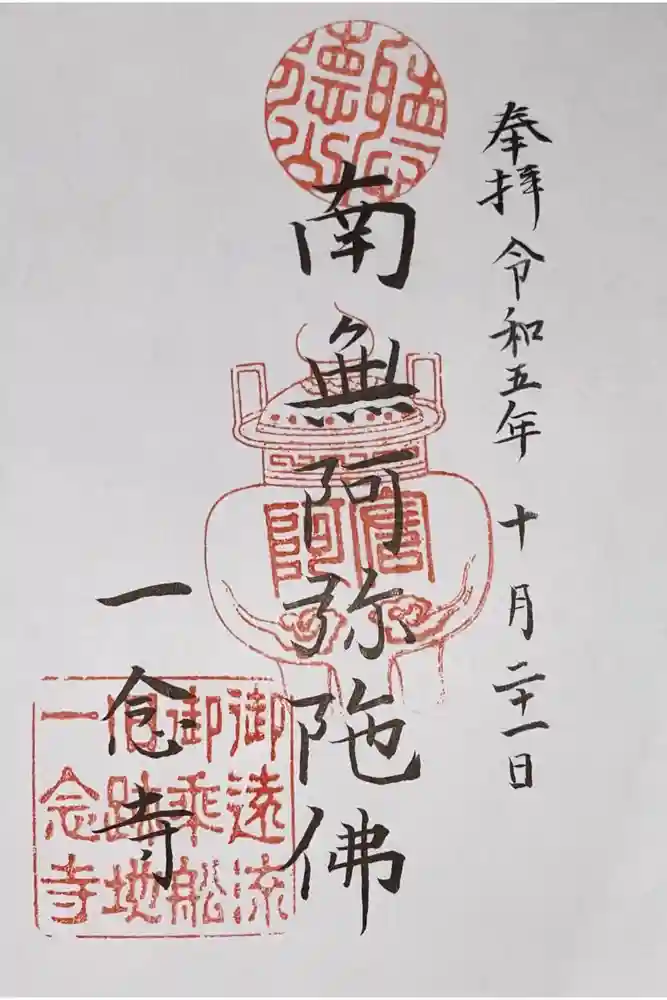 奉拝 令和五年 十月二十一日
南無阿弥陀佛
一念寺
御遠流
御乗船
一念寺